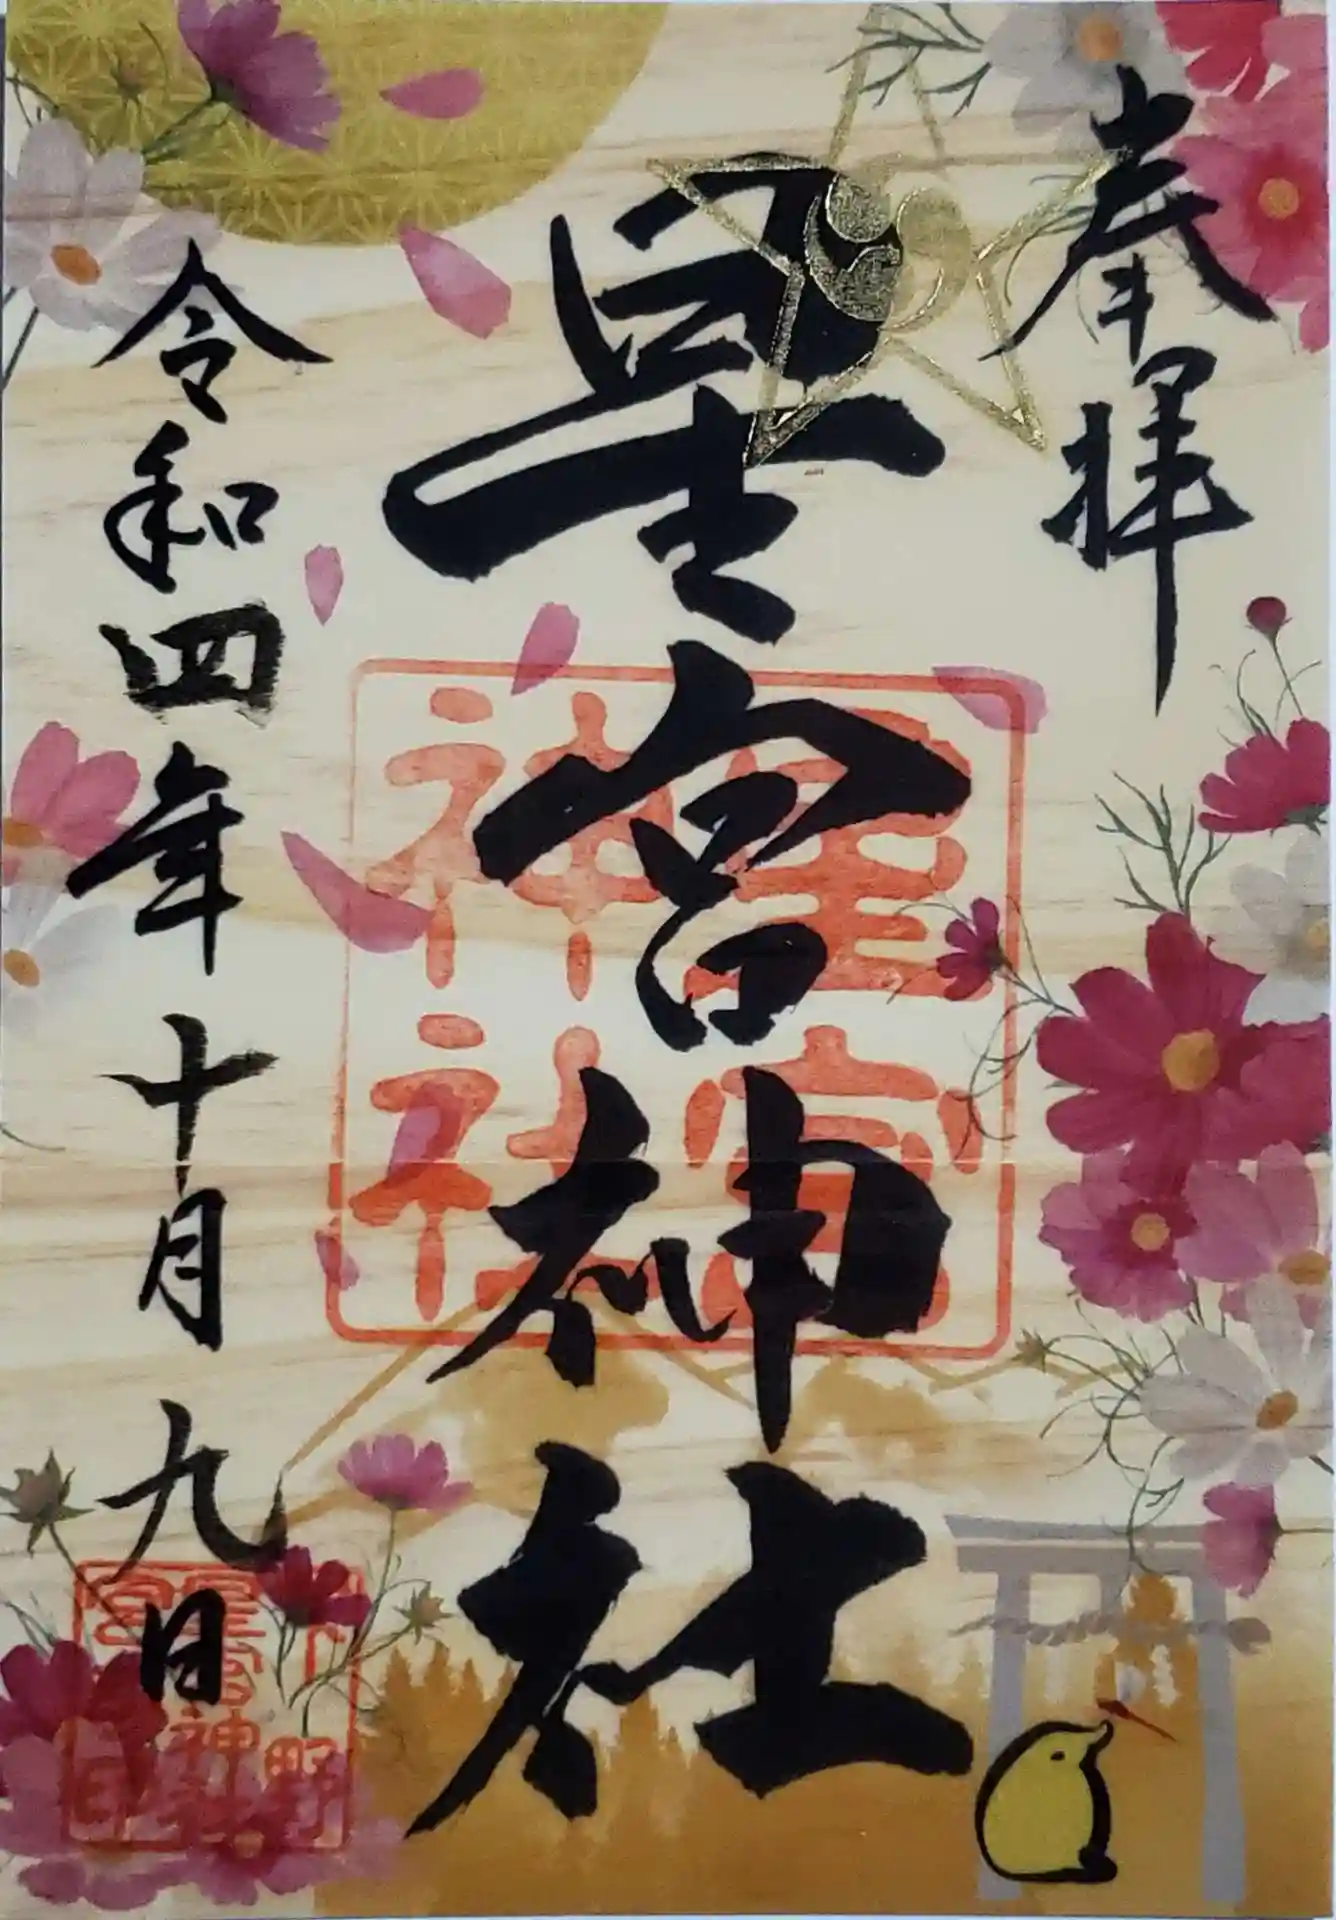 奉拝
星宮神社
星宮
神社
令和四年十月九日